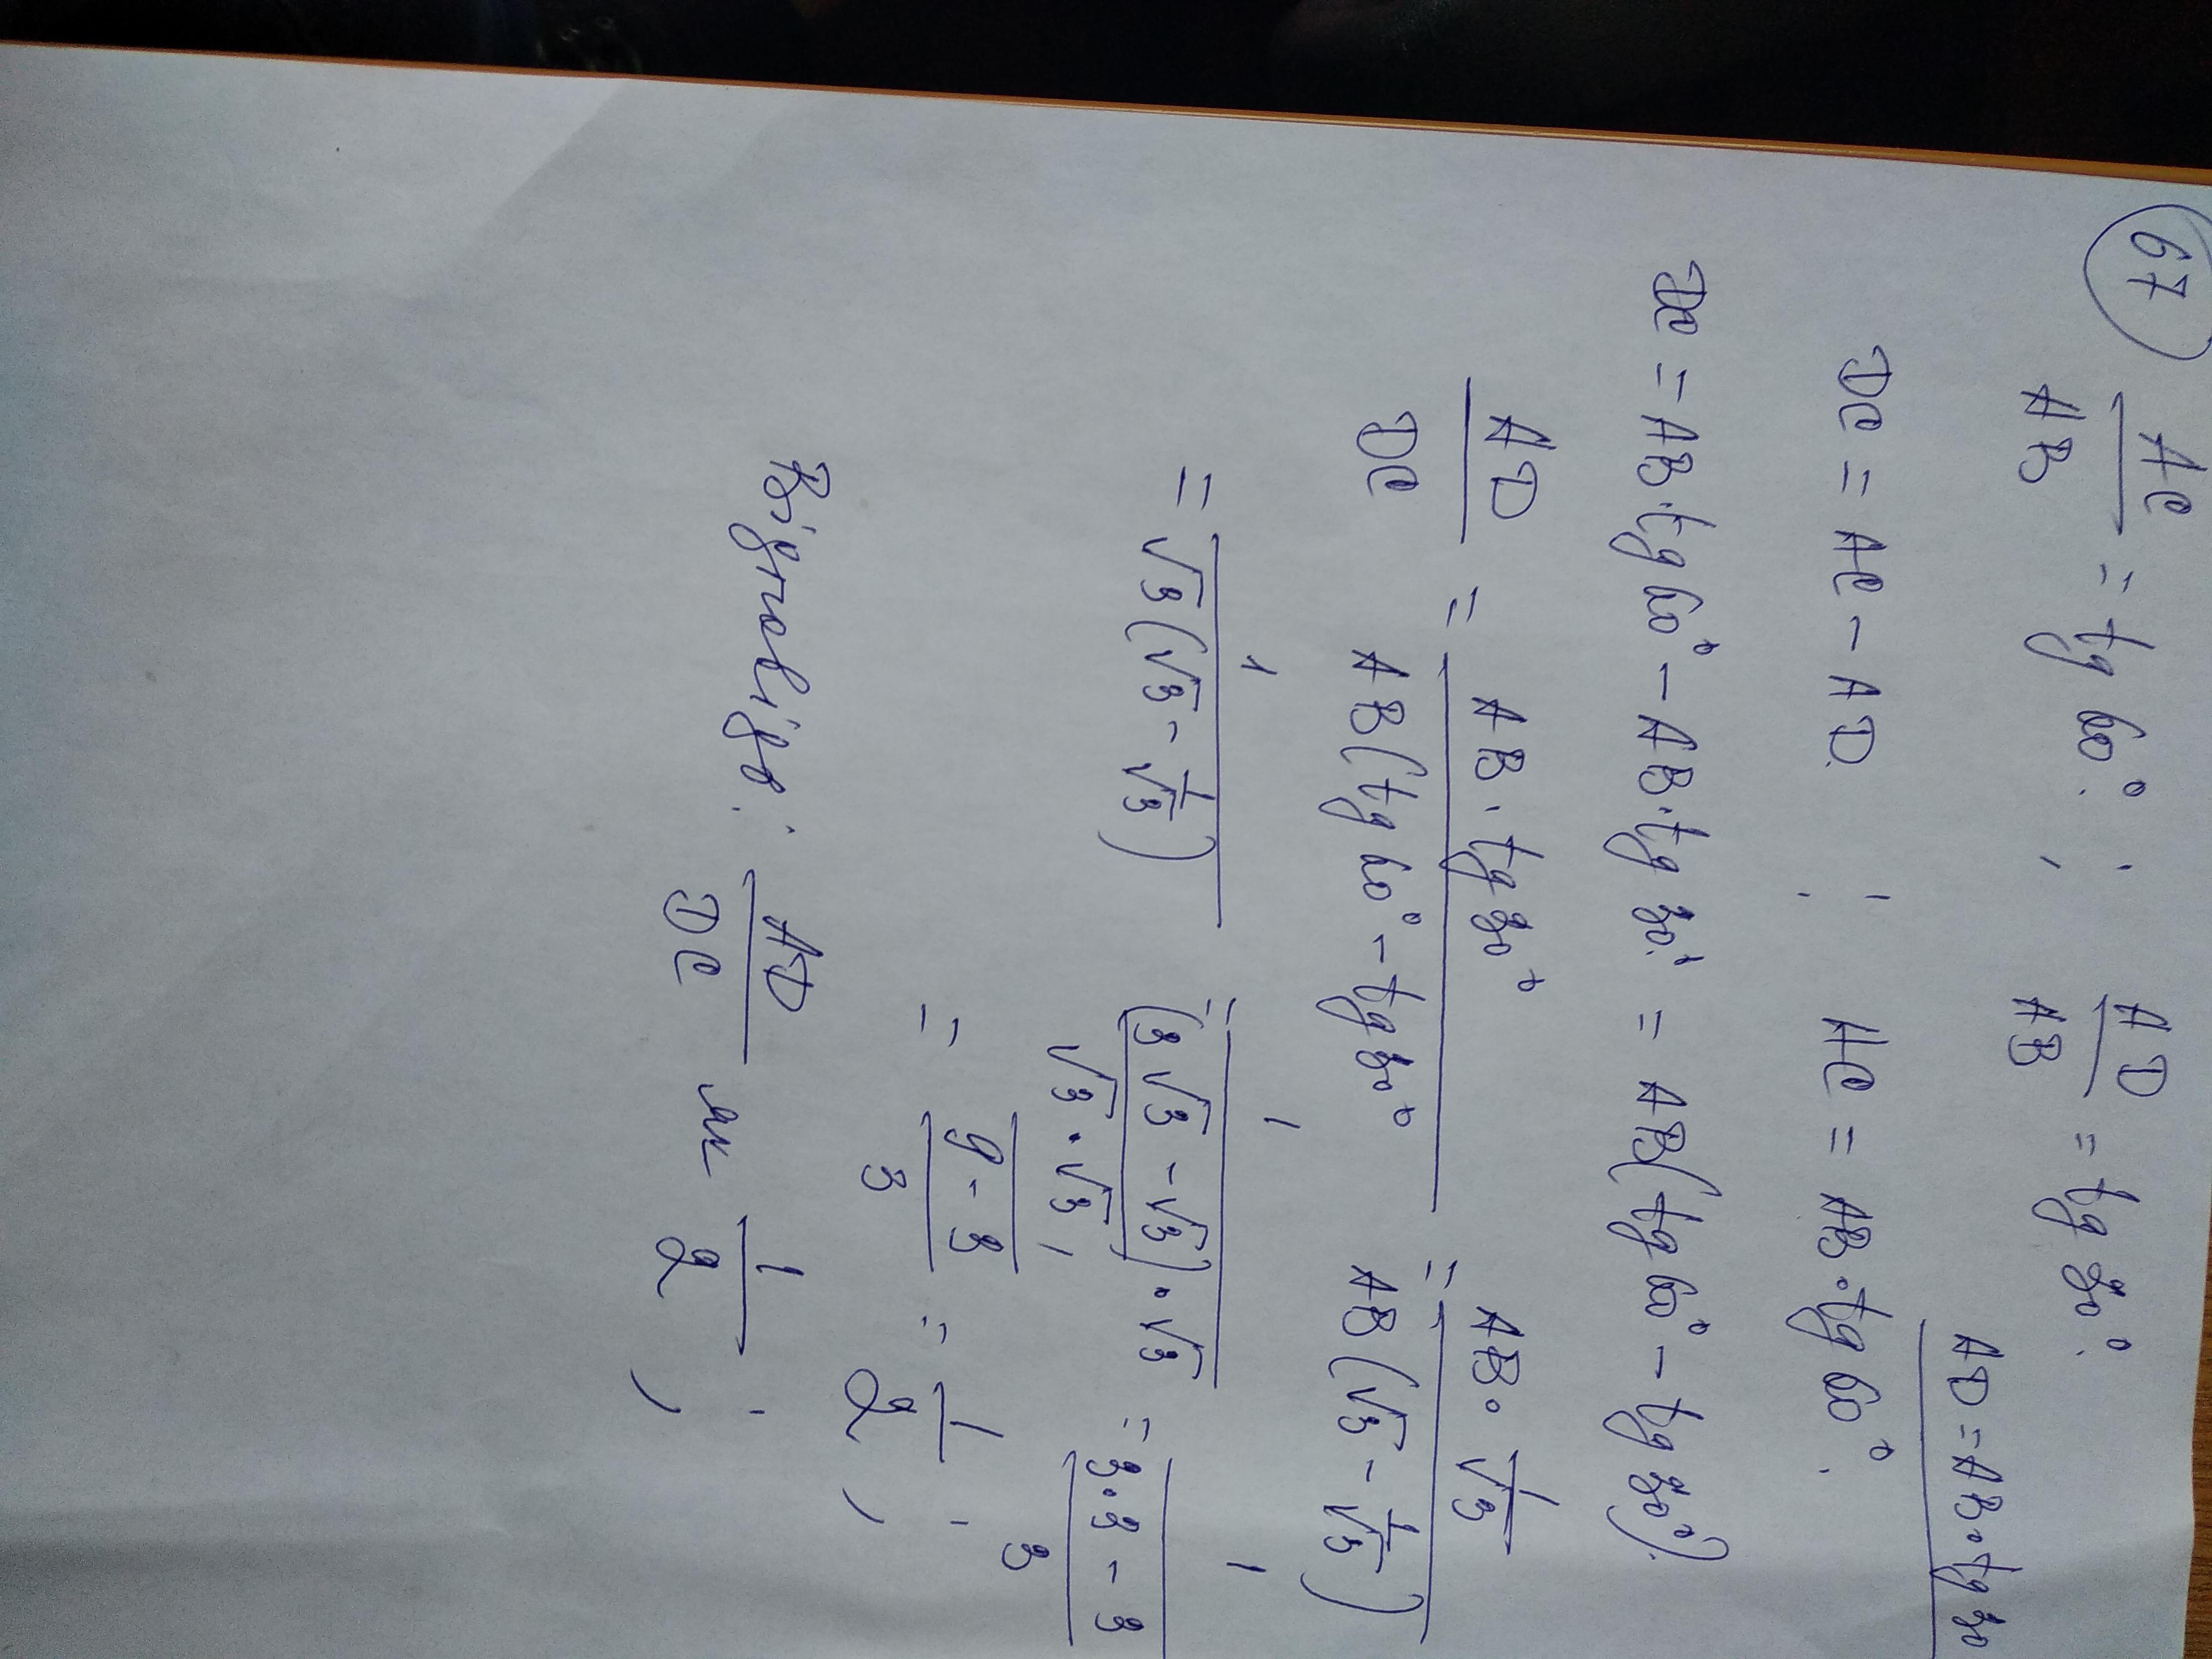 67 AC/AB = tg 60°. ; AD/AB = tg 30°.
AD = AB·tg 30
DC = AC - AD ; AC = AB·tg 60°.
DC = AB·tg 60° - AB·tg 30° = AB(tg 60° - tg 30°).
AD/DC = AB·tg 30°/AB(tg 60° - tg 30° = AB·1/√3/AB(√3 - 1/√3)
= 1/√3(√3 - 1/√3) = 1/(3√3 - √3)·√3/√3·√3, = 1/3·3 - 3/3
= 9 - 3/3 = 1/2 ;
Відповідь: AD/DC як 1/2 ;